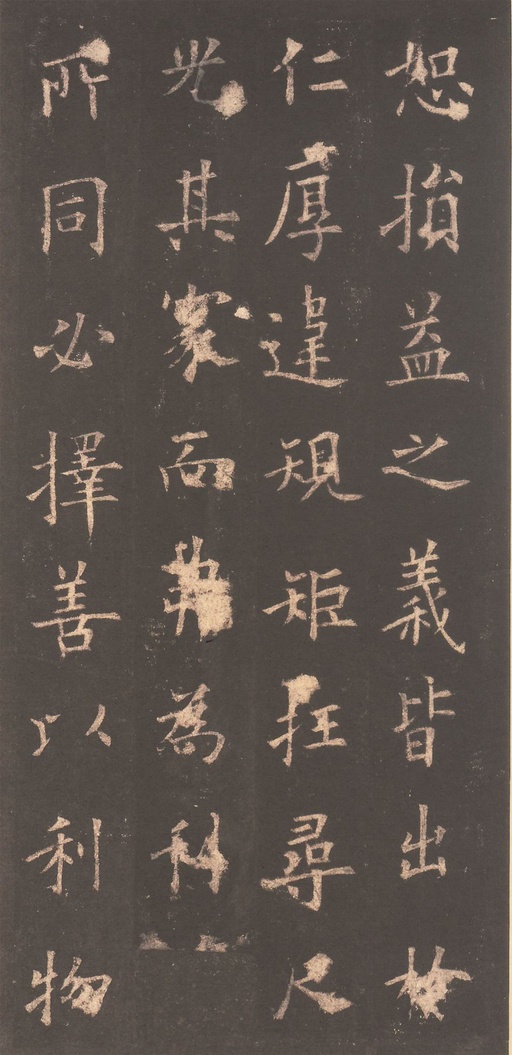 恕損益之義皆出於
仁厚違規矩抂尋尺
光其裳而為科
所同必擇善以利物